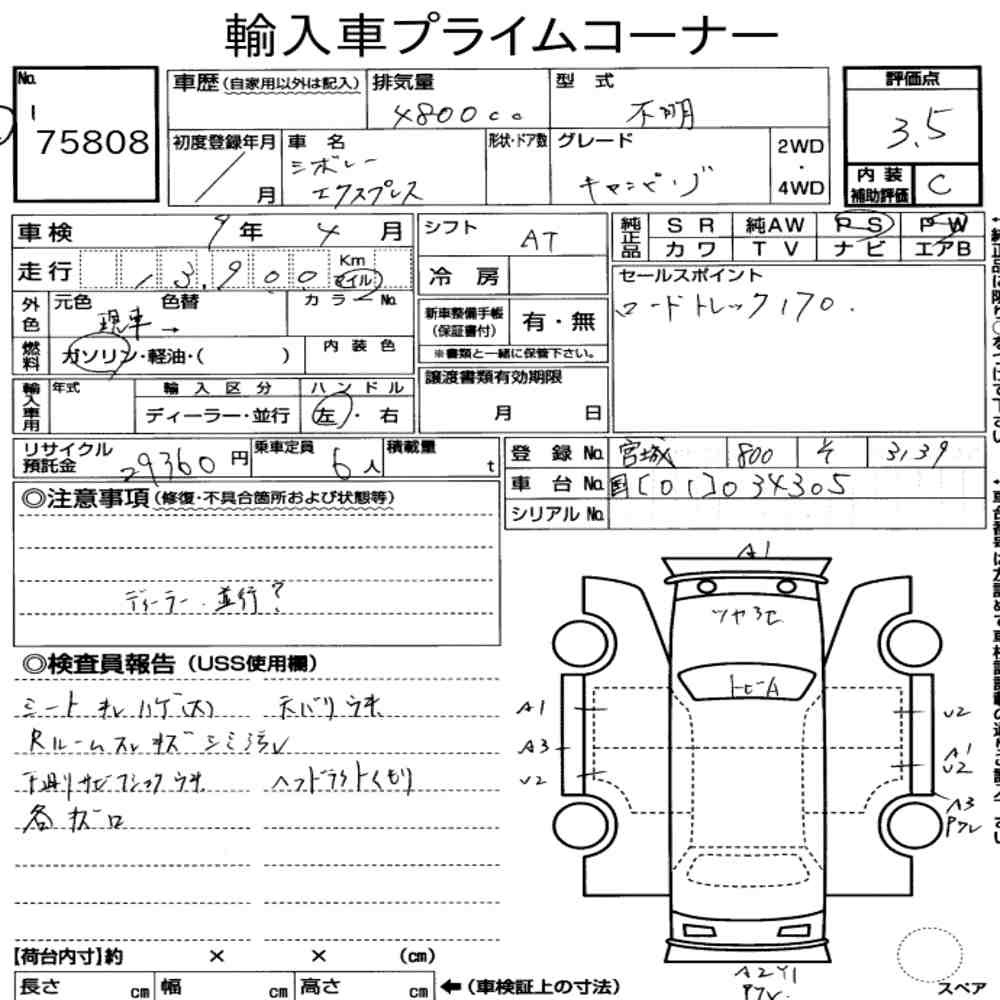 輸入車プライムコーナー
No. 1
75808
車歴 (自家用以外は記入)
排気量 4800cc
型式 不明
評価点 3.5
初度登録年月 / 月
車名 シボレー
エクスプレス
形状・ドア数
グレード キャンピング
2WD
・
4WD
内装
補助評価 C
車検 9年 4月
シフト AT
純正品 SR 純AW PS PW
カワ TV ナビ エアB
走行 13,900 Km
マイル
冷房
セールスポイント
ロードトレック170.
外色 元色 現車→ 色替 カラーNo.
新車整備手帳
(保証書付) 有・無
※書類と一緒に保管下さい。
燃料 ガソリン・軽油・( ) 内装色
輸入車用 年式 輸入区分 ハンドル
ディーラー・並行 左・右
譲渡書類有効期限
月 日
リサイクル
預託金 29360円
乗車定員 6人
積載量 t
登録No. 宮城 800 3139
車台No. 国[01]034305
シリアルNo.
◎注意事項 (修復・不具合箇所および状態等)
ディーラー・並行?
◎検査員報告 (USS使用欄)
シート キレ ハゲ(大) 天バリウキ
Rルームスレ キズ シミ 汚レ
下廻りサビ ウキ ヘッドライトくもり
各キズ
A1
ツヤ
トビA
A1
A3
U2
U2
A1
U2
A3
P7レ
A2Y1
P7レ
スペア
【荷台内寸】約 × × (cm)
長さ cm 幅 cm 高さ cm ←(車検証上の寸法)